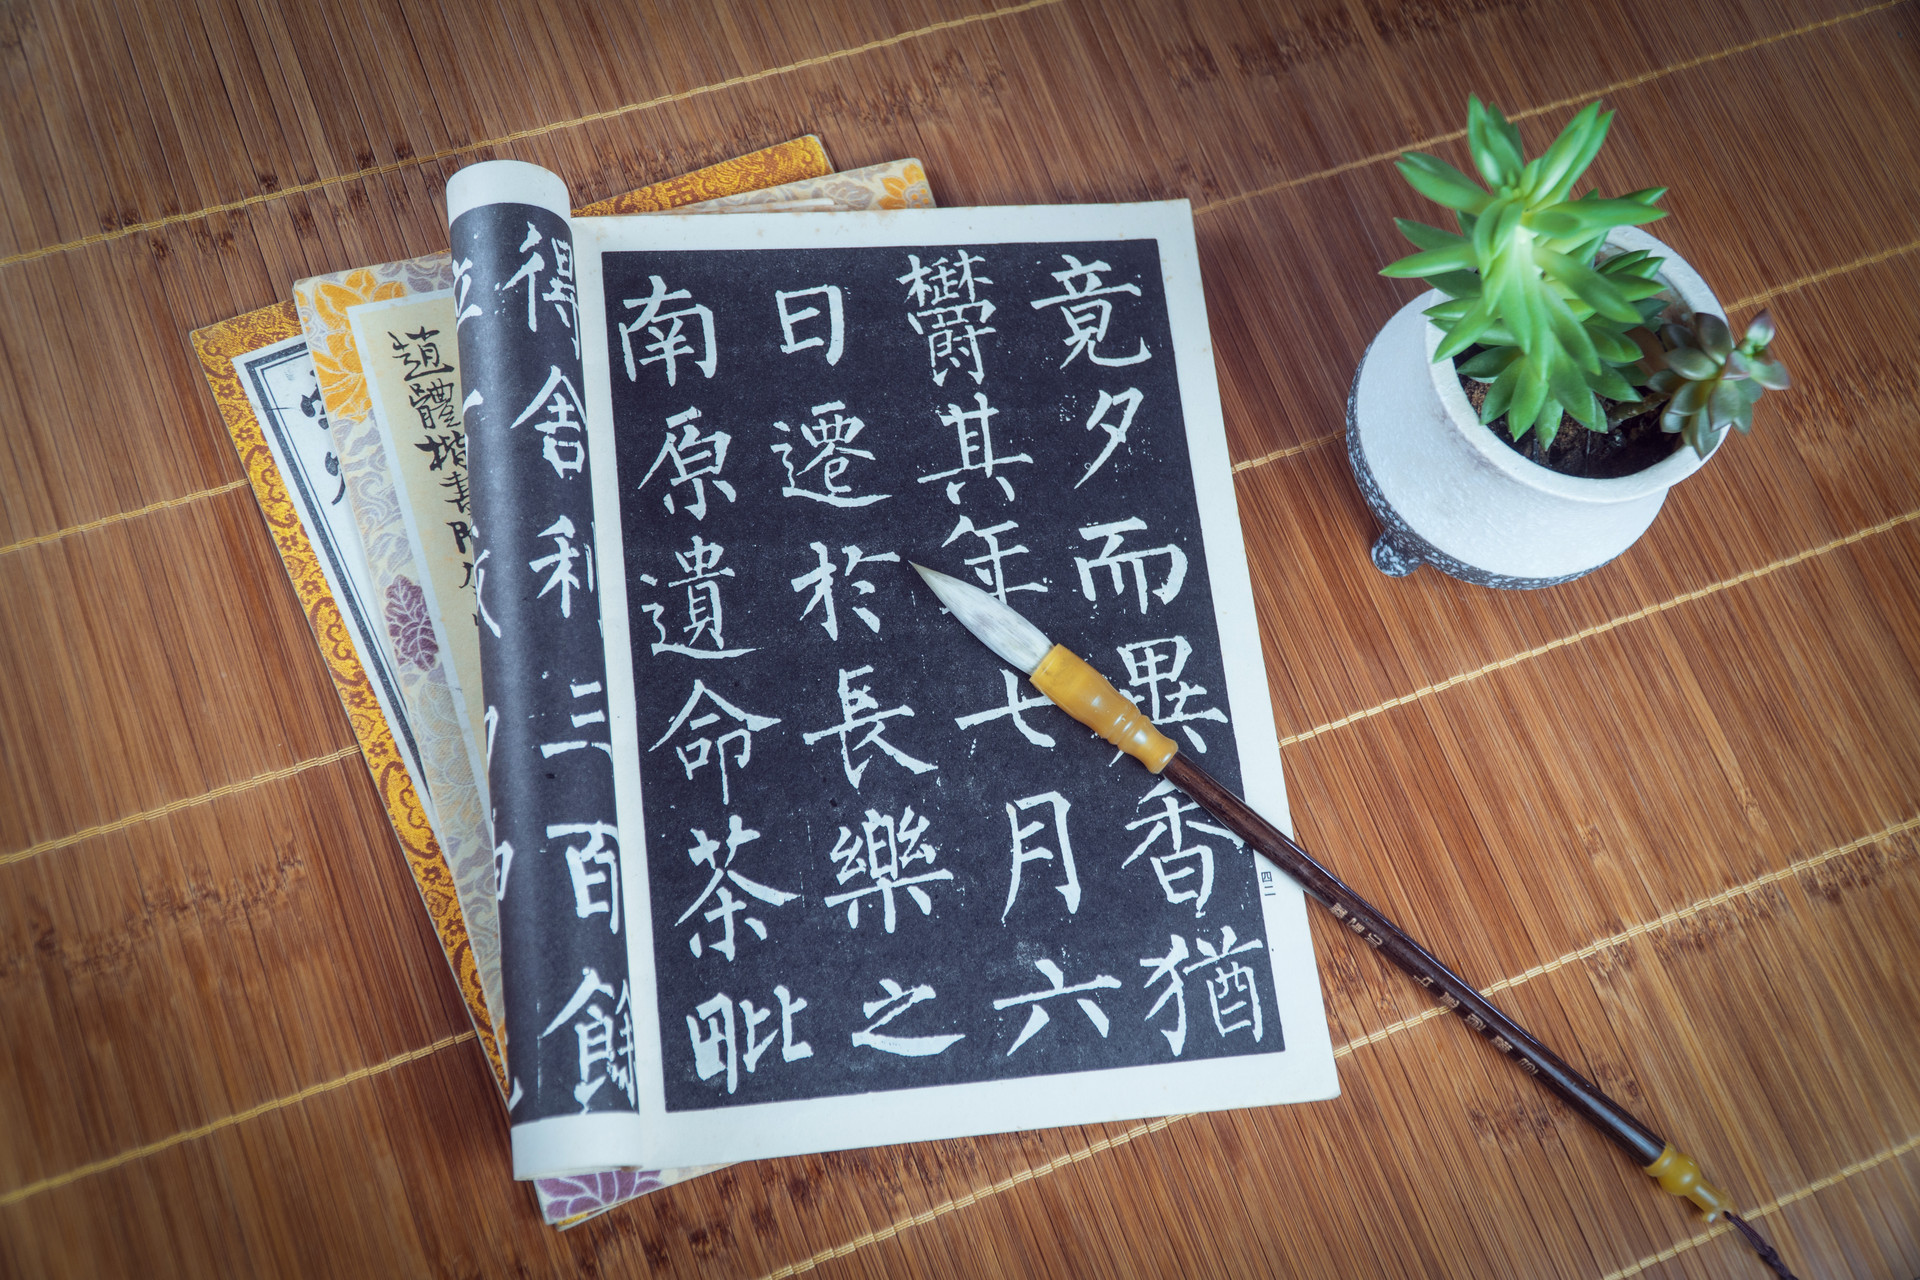 竟夕而異香猶
鬱其年七月六
日遷於長樂之
南原遺命茶毗
得舍利三百餘
四二
趙體楷書